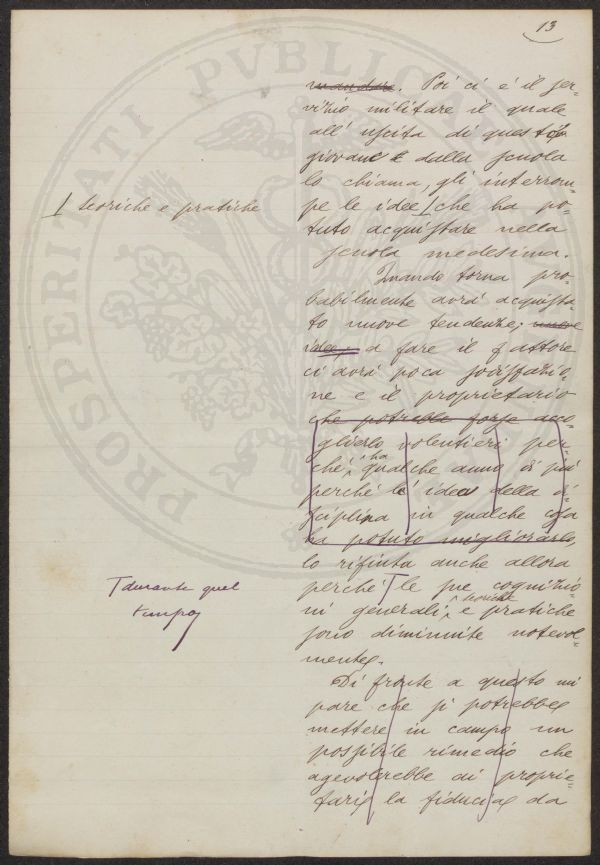 13
mandare. Poi ci è il ser-
vizio militare il quale
all' uscita di questi
giovani dalla scuola
lo chiama, gli interrom-
⌈ teoriche e pratiche
pe le idee ⌈ che ha po-
tuto acquistare nella
scuola medesima.
Quando torna pro-
babilmente avrà acquista-
to nuove tendenze; nuove
idee, a fare il fattore
ci avrà poca sodisfazio-
ne e il proprietario
che potrebbe forse acco-
glierlo volentieri per-
chè ha qualche anno di più
perchè le idea della di-
sciplina in qualche cosa
ha potuto migliorarlo,
lo rifiuta anche allora
⌈ durante quel
tempo
perchè ⌈ le sue cognizio-
ni generali teoriche e pratiche
sono diminuite notevol-
mente.
Di fronte a questo mi
pare che si potrebbe
mettere in campo un
possibile rimedio che
agevolerebbe ai proprie-
tari la fiducia da
PROSPERITATI PVBLICAE